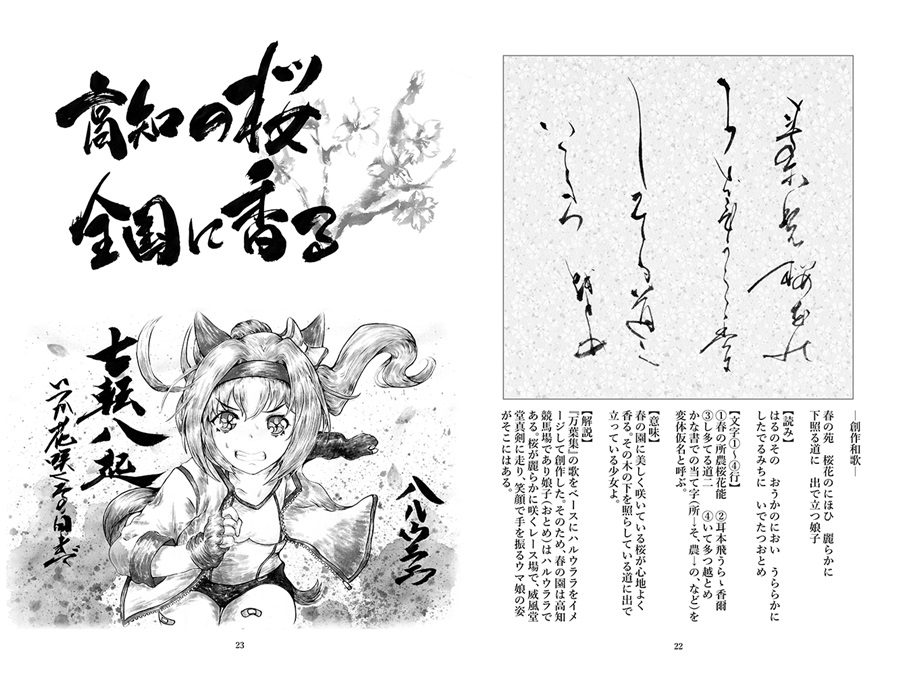 ―創作和歌―
春の苑　桜花のにほひ　麗らかに
下照る道に　出で立つ娘子
【読み】
はるのその　おうかのにおい　うららかに
したでるみちに　いでたつおとめ
【文字①～④行】
①春の所農桜花能　②耳本飛うらゝ香爾
③し多てる道二　④いて多つ越とめ
かな書での当て字(所→そ、農→の、など)を
変体仮名と呼ぶ。
【意味】
春の園に美しく咲いている桜が心地よく
香る。その木の下を照らしている道に出で
立っている少女よ。
【解説】
『万葉集』の歌をベースにハルウララをイメ
ージして創作した。そのため、春の園は高知
競馬場であり娘子(おとめ)はハルウララで
ある。桜が麗らかに咲くレース場で、威風堂
堂真剣に走り、笑顔で手を振るウマ娘の姿
がそこにはある。
22
高知の桜
全国に香る
ハルウララ
七転八起
いつか花咲くその日まで
23